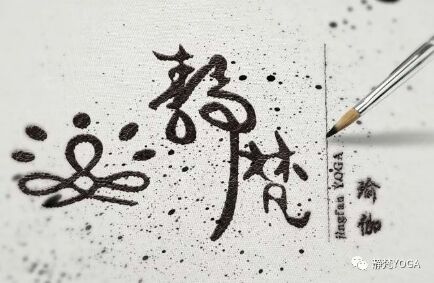 靜梵
jingfan YOGA
瑜伽
靜梵YOGA